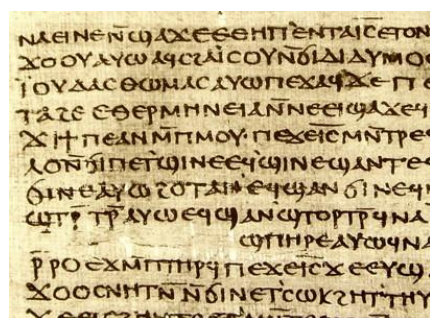 ⲛⲁⲉⲓⲛⲉⲛ̄ϣⲁϫⲉⲉⲑⲏⲡ'ⲉⲛⲧⲁⲓ̅ⲥ̅ⲉⲧⲟⲛ
ϫⲟⲟⲩⲁⲩⲱⲁϥⲥϩⲁⲓⲥⲟⲩⲛ̄ϭⲓⲇⲓⲇⲩⲙⲟⲥ
ⲓ̈ⲟⲩⲇⲁⲥⲑⲱⲙⲁⲥⲁⲩⲱⲡⲉϫⲁϥϫⲉⲡⲉ
ⲧⲁϩⲉⲉⲑⲉⲣⲙⲏⲛⲉⲓⲁⲛ̄ⲛⲉⲉⲓϣⲁϫⲉϥ
ϫⲓϯⲡⲉⲁⲛⲙ̄ⲡⲙⲟⲩ·ⲡⲉϫⲉⲓ̅ⲥ̅ⲙⲛ̄ⲧⲣⲉϥ
ⲗⲟⲛ̄ϭⲓⲡⲉⲧ'ϣⲓⲛⲉⲉϥϣⲓⲛⲉϣⲁⲛⲧⲉϥ
ϭⲓⲛⲉⲁⲩⲱϩⲟⲧⲁⲛ'ⲉϥϣⲁⲛϭⲓⲛⲉϥ
ϣⲧⲣ̄ⲧⲣ̄ⲁⲩⲱⲉϥϣⲁⲛϣⲧⲟⲣⲧⲣ̄ϥⲛⲁ
ϣⲡⲏⲣⲉⲁⲩⲱϥⲛⲁ
ⲣ̄ⲣⲟⲉϫⲙ̄ⲡⲧⲏⲣϥⲡⲉϫⲉⲓ̅ⲥ̅ϫⲉⲉⲩϣ
ϫⲟⲟⲥⲛⲏⲧⲛ̄ⲛ̄ϭⲓⲛⲉⲧ'ⲥⲱⲕϩⲏⲧ'ⲧⲏⲩ